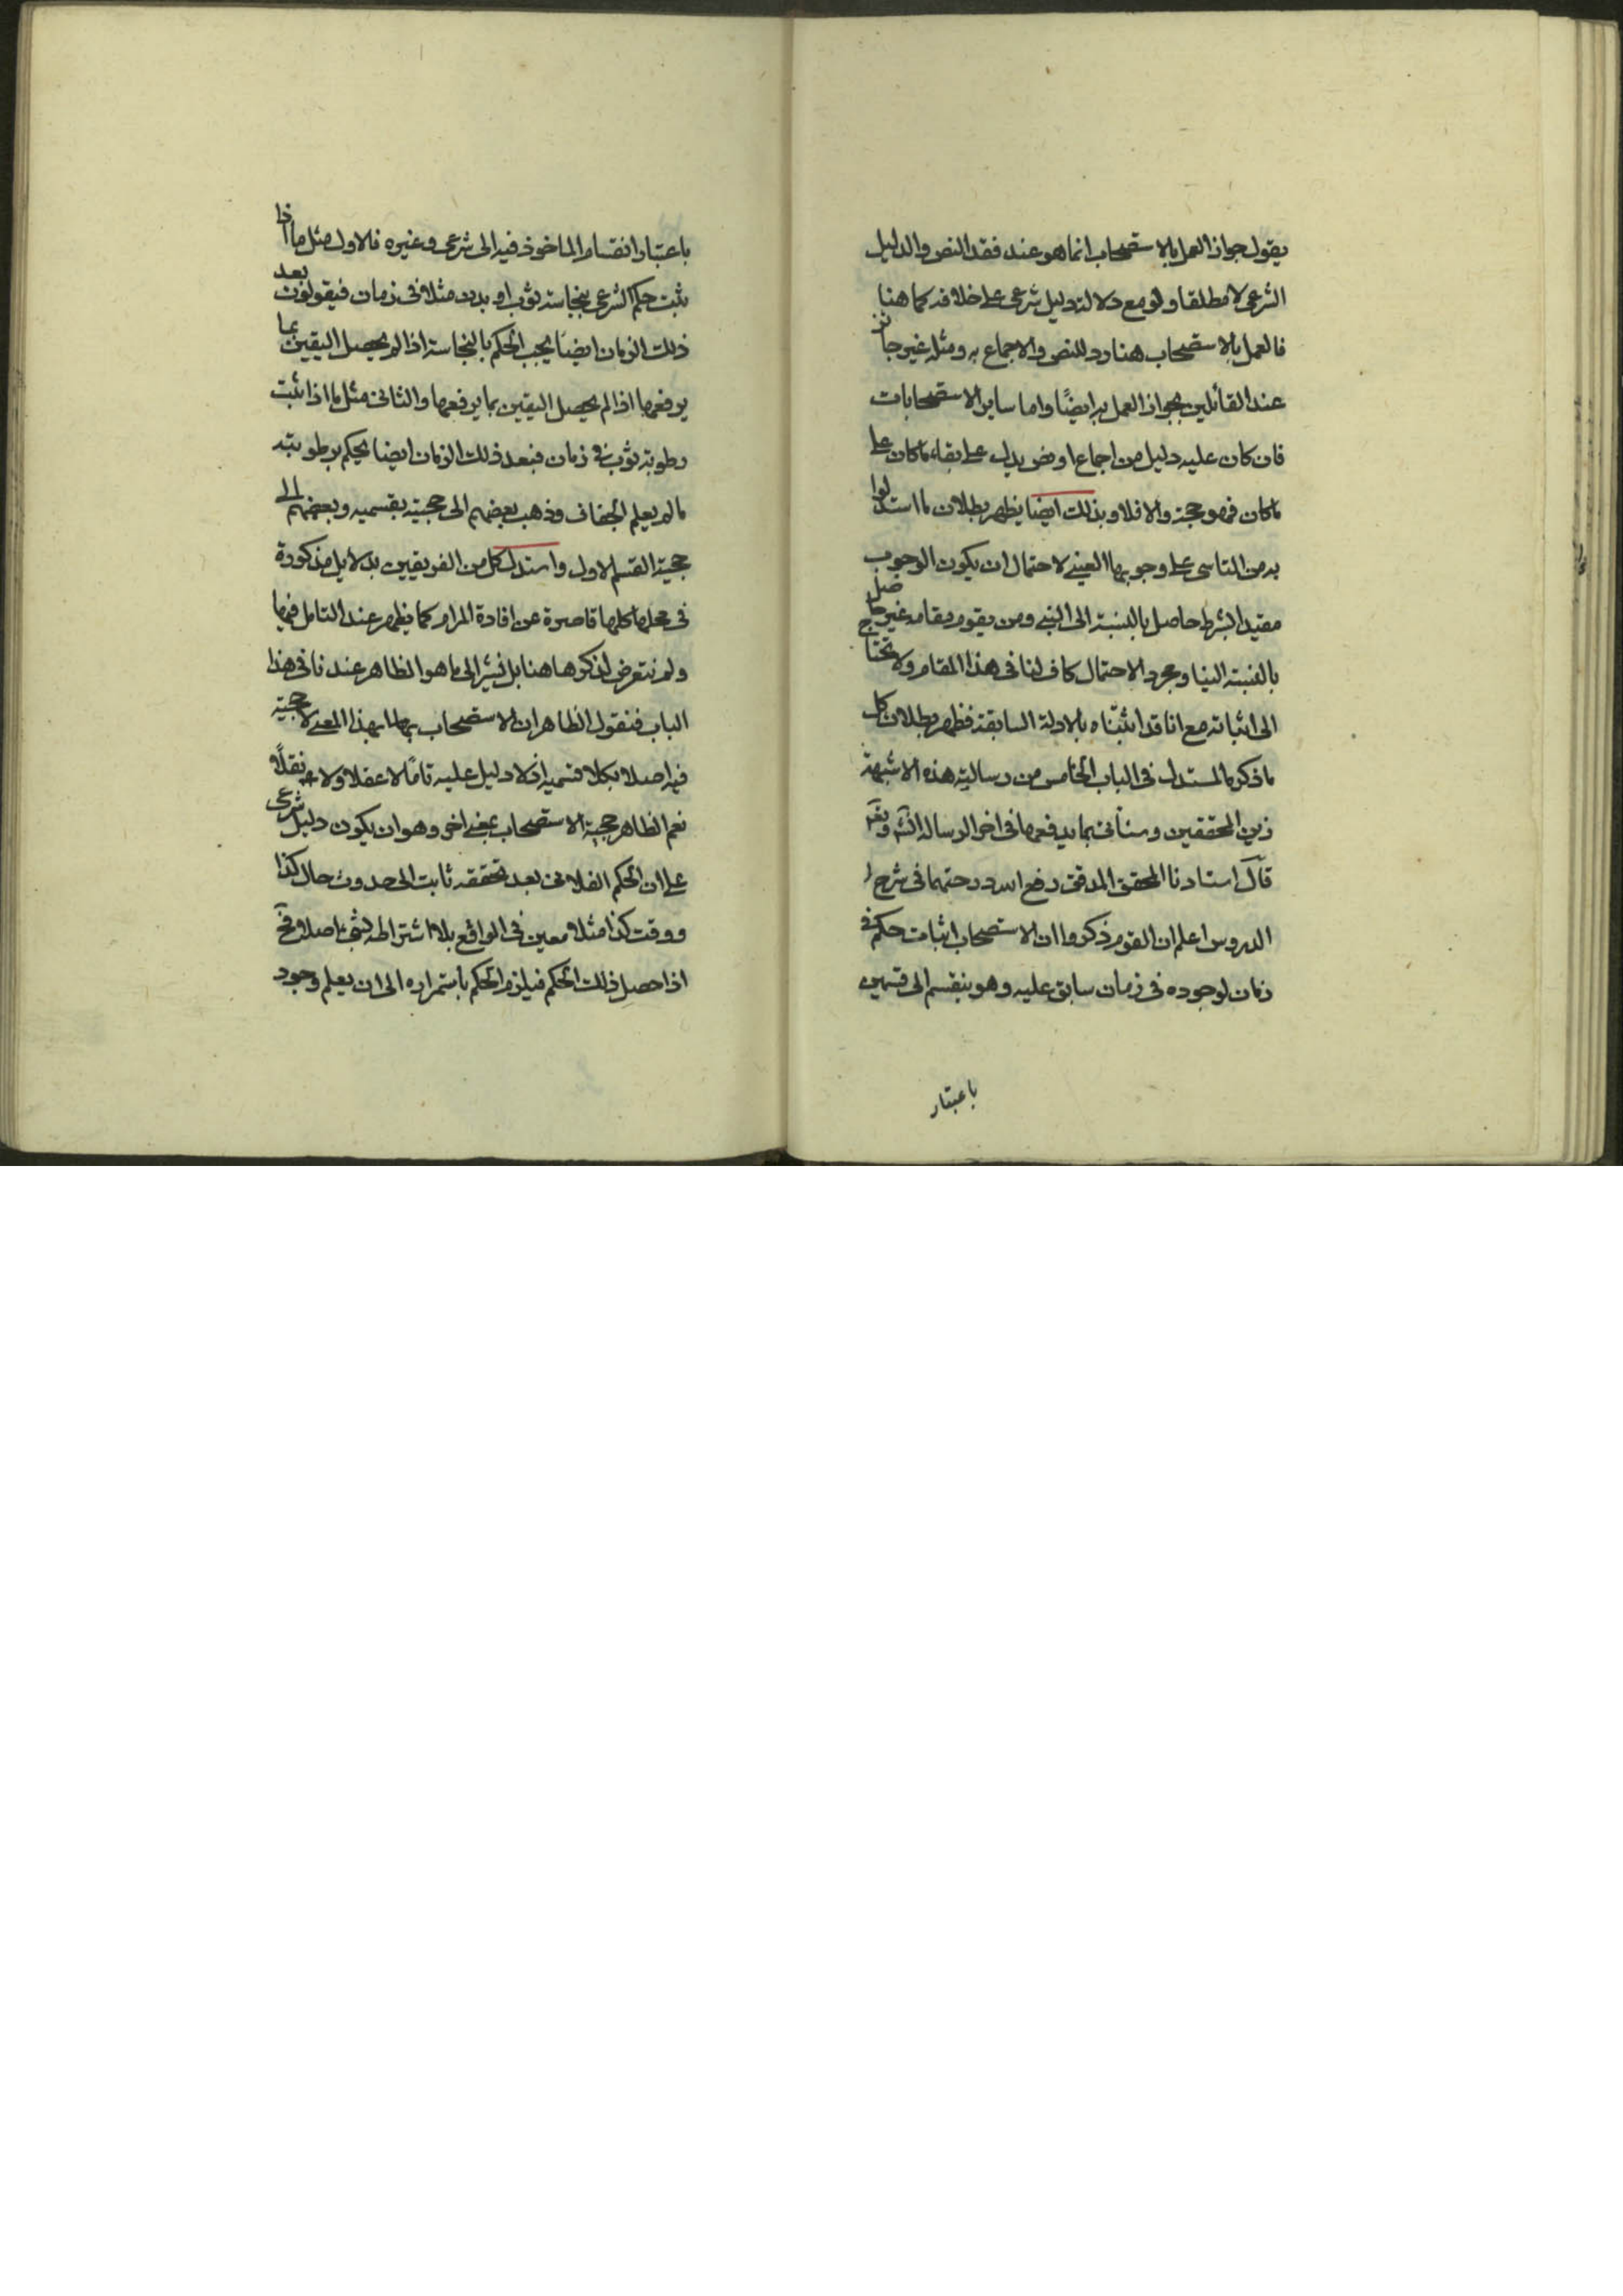 يقول جواز العمل بالاستصحاب انما هو عند فقد النص والدليل
الشرعي لا مطلقا ولو مع دلالة دليل شرعي على خلافه كما هنا
فالعمل بالاستصحاب هنا رد للنص والاجماع به ومثله غير جائز
عند القائلين بجواز العمل به ايضًا واما ساير الاستصحابات
فان كان عليه دليل من اجماع او نص يدل على بقاء ما كان على
ما كان فهو حجة والا فلا وبذلك ايضا يظهر بطلان ما استدلوا
به من التاسي على وجوبها العيني لاحتمال ان يكون الوجوب
مقيد الشرط حاصل بالنسبة الى النبي ومن يقوم مقامه غير حاصل
بالنسبة الينا ومجرد الاحتمال كاف لنا في هذا المقام ولا نحتاج
الى اثباته مع انا قد اثبتناه بالادلة السابقة فظهر بطلان كل
ما ذكره المستدل في الباب الخامس من رسالته هذه الاشبهة
زين المحققين وسناتي بما يدفعها في اخر الرسالة
قال استادنا المحقق المدقق رفع الله درجتهما في شرح
الدروس اعلم ان القوم ذكروا ان الاستصحاب اثبات حكم في
زمان لوجوده في زمان سابق عليه وهو ينقسم الى قسمين
باعتبار
باعتبار انقسام الماخوذ فيه الى شرعي وغيره فالاول مثل ما اذا
ثبت حكم الشرعي بنجاسة ثوب او بدن مثلا في زمان فيقولون بعد
ذلك الزمان ايضًا يجب الحكم بالنجاسة اذا لم يحصل اليقين بما
يرفعها اذا لم يحصل اليقين بما يرفعها والثاني مثل ما اذا ثبت
رطوبة ثوب في زمان فبعد ذلك الزمان ايضا يحكم برطوبته
ما لم يعلم الجفاف وذهب بعضهم الى حجيته بقسميه وبعضهم الى
حجية القسم الاول واستدل كل من الفريقين بدلايل مذكورة
في محلها كلها قاصرة عن افادة المرام كما يظهر عند التامل فيها
ولم نتعرض لذكرها هنا بل نشير الى ما هو الظاهر عندنا في هذا
الباب فنقول الظاهر ان الاستصحاب بهذا المعنى لا حجية
فيه اصلا بكلا قسميه اذ لا دليل عليه تامًا لا عقلا ولا نقلًا
نعم الظاهر حجية الاستصحاب بمعنى اخر وهو ان يكون دليل شرعي
على ان الحكم الفلاني بعد تحققه ثابت الى حدوث حال كذا
ووقت كذا مثلا معين في الواقع بلا اشتراطه بشيء اصلا فح
اذا حصل ذلك الحكم فيلزم الحكم باستمراره الى ان يعلم وجود